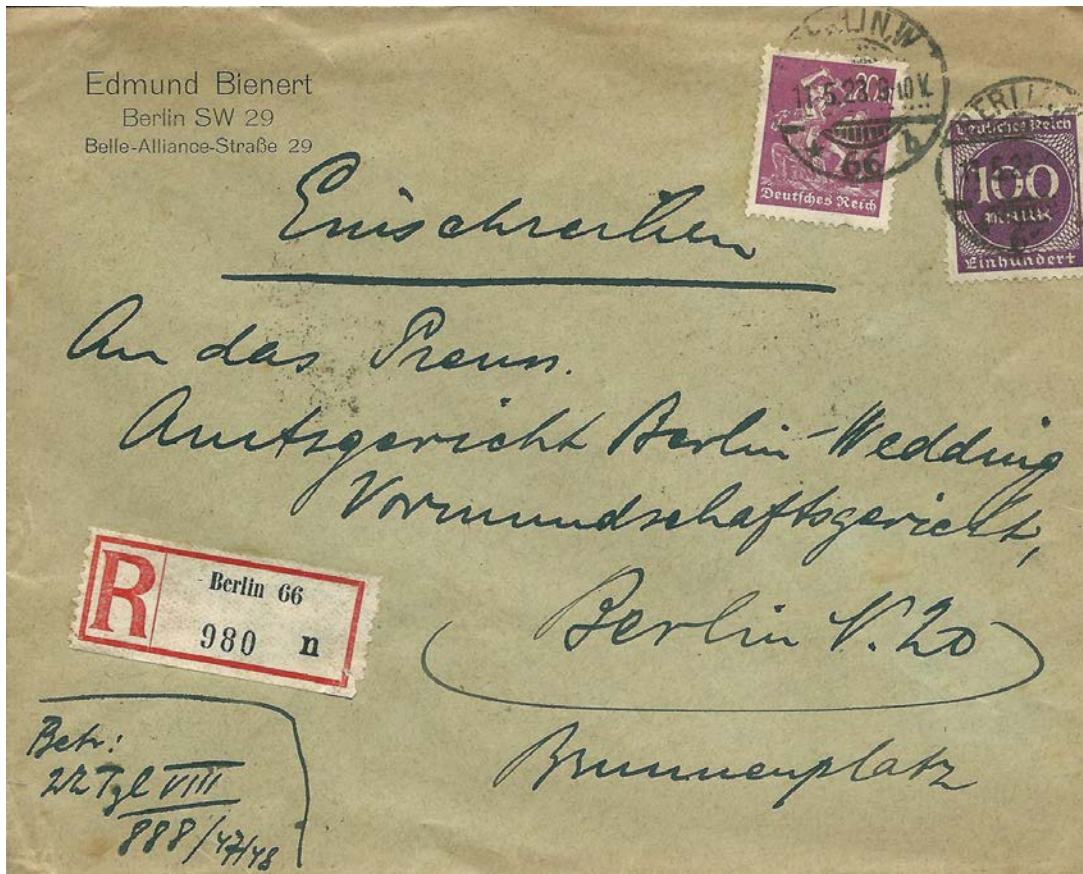 Edmund Bienert
Berlin SW 29
Belle-Alliance-Straße 29
BERLIN.W
17.5.23.9-10V.
* 66 b
20
Deutsches Reich
BERLIN
Deutsches Reich
100
MARK
Einhundert
Einschreiben
An das Preuss.
Amtsgericht Berlin-Wedding
Vormundschaftsgericht,
Berlin N. 20
Brunnenplatz
R
Berlin 66
980 n
Betr:
VIII
888/47/48